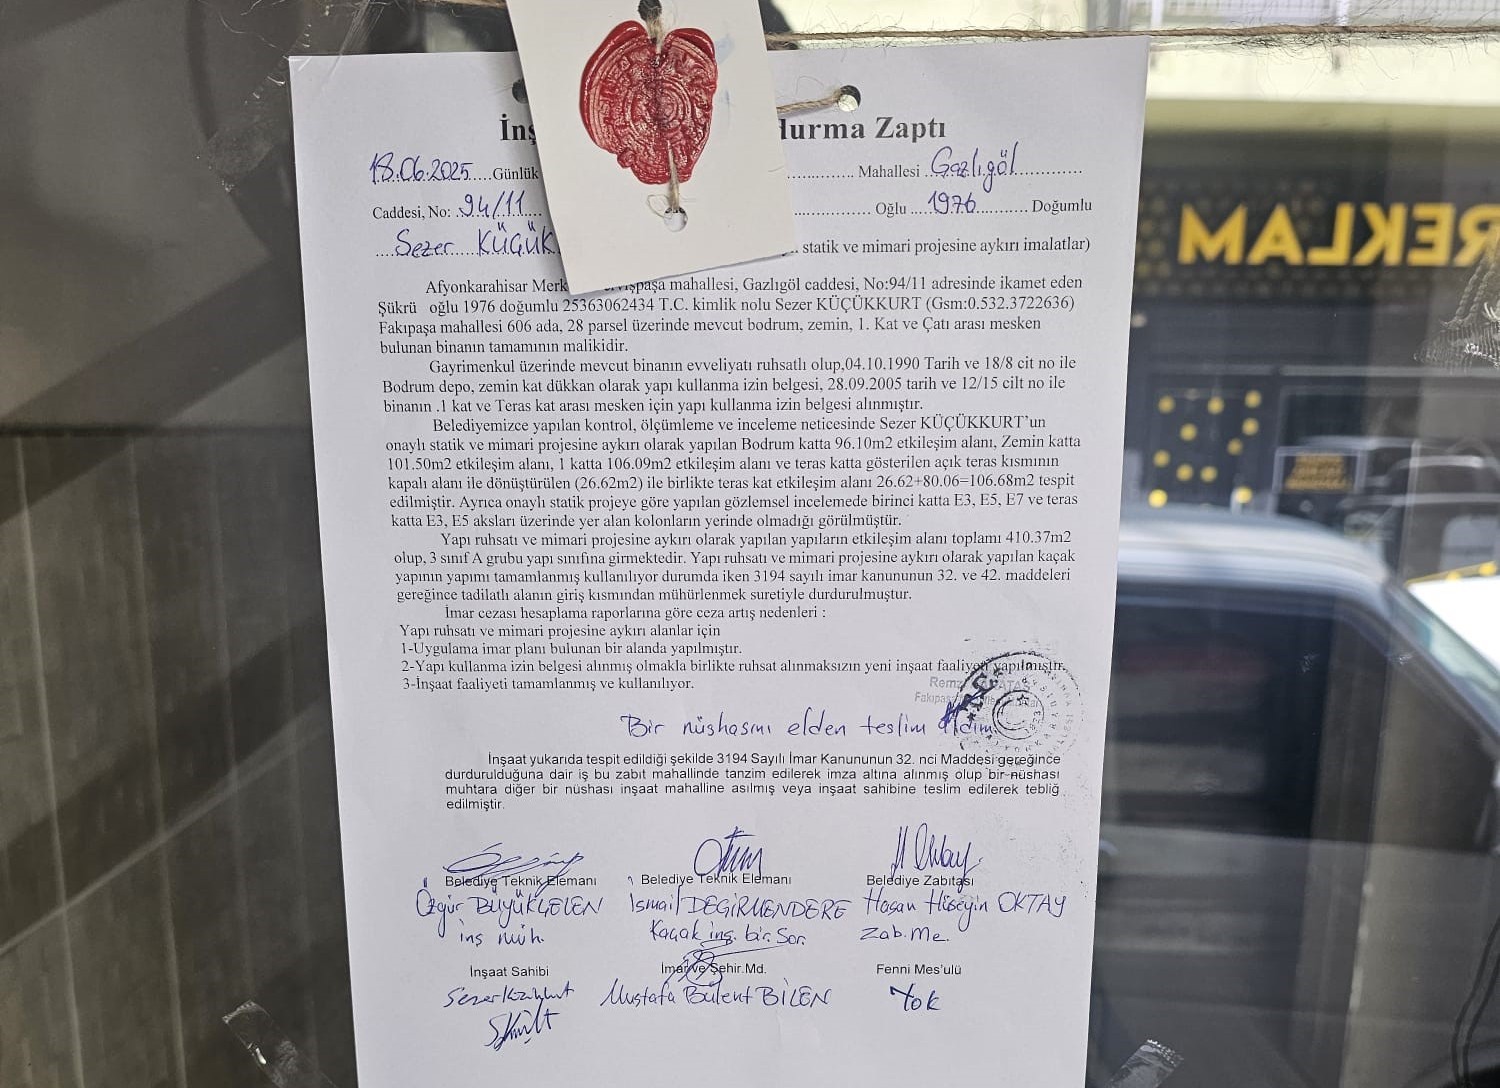 İnş
durma Zaptı
18.06.2025....Günlük
.............. Mahallesi ..Gazlıgöl..............
Caddesi, No: .94/11....
................ Oğlu ....1976............ Doğumlu
....Sezer....KÜÇÜK
.. statik ve mimari projesine aykırı imalatlar)
Afyonkarahisar Merk paşa mahallesi, Gazlıgöl caddesi, No:94/11 adresinde ikamet eden
Şükrü oğlu 1976 doğumlu 25363062434 T.C. kimlik nolu Sezer KÜÇÜKKURT (Gsm:0.532.3722636)
Fakıpaşa mahallesi 606 ada, 28 parsel üzerinde mevcut bodrum, zemin, 1. Kat ve Çatı arası mesken
bulunan binanın tamamının malikidir.
Gayrimenkul üzerinde mevcut binanın evveliyatı ruhsatlı olup,04.10.1990 Tarih ve 18/8 cit no ile
Bodrum depo, zemin kat dükkan olarak yapı kullanma izin belgesi, 28.09.2005 tarih ve 12/15 cilt no ile
binanın .1 kat ve Teras kat arası mesken için yapı kullanma izin belgesi alınmıştır.
Belediyemizce yapılan kontrol, ölçümleme ve inceleme neticesinde Sezer KÜÇÜKKURT'un
onaylı statik ve mimari projesine aykırı olarak yapılan Bodrum katta 96.10m2 etkileşim alanı, Zemin katta
101.50m2 etkileşim alanı, 1 katta 106.09m2 etkileşim alanı ve teras katta gösterilen açık teras kısmının
kapalı alanı ile dönüştürülen (26.62m2) ile birlikte teras kat etkileşim alanı 26.62+80.06=106.68m2 tespit
edilmiştir. Ayrıca onaylı statik projeye göre yapılan gözlemsel incelemede birinci katta E3, E5, E7 ve teras
katta E3, E5 aksları üzerinde yer alan kolonların yerinde olmadığı görülmüştür.
Yapı ruhsatı ve mimari projesine aykırı olarak yapılan yapıların etkileşim alanı toplamı 410.37m2
olup, 3 sınıf A grubu yapı sınıfına girmektedir. Yapı ruhsatı ve mimari projesine aykırı olarak yapılan kaçak
yapının yapımı tamamlanmış kullanılıyor durumda iken 3194 sayılı imar kanununun 32. ve 42. maddeleri
gereğince tadilatlı alanın giriş kısmından mühürlenmek suretiyle durdurulmuştur.
İmar cezası hesaplama raporlarına göre ceza artış nedenleri :
Yapı ruhsatı ve mimari projesine aykırı alanlar için
1-Uygulama imar planı bulunan bir alanda yapılmıştır.
2-Yapı kullanma izin belgesi alınmış olmakla birlikte ruhsat alınmaksızın yeni inşaat faaliyeti yapılmıştır.
3-İnşaat faaliyeti tamamlanmış ve kullanılıyor.
Bir nüshasını elden teslim aldım.
İnşaat yukarıda tespit edildiği şekilde 3194 Sayılı İmar Kanununun 32. nci Maddesi gereğince
durdurulduğuna dair iş bu zabıt mahallinde tanzim edilerek imza altına alınmış olup bir nüshası
muhtara diğer bir nüshası inşaat mahalline asılmış veya inşaat sahibine teslim edilerek tebliğ
edilmiştir.
Belediye Teknik Elemanı
Belediye Teknik Elemanı
Belediye Zabıtası
Özgür BÜYÜKGELEN
İsmail DEGİRMENDERE
Hasan Hüseyin OKTAY
inş müh.
Kaçak inş. bir. Sor.
Zab. Me.
İnşaat Sahibi
İmar ve Şehir.Md.
Fenni Mes'ulü
Sezer Küçükkurt
Mustafa Bülent BİLEN
Yok
REKLAM